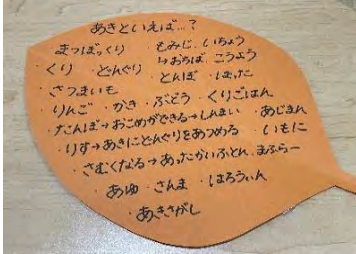 あきといえば…?
まつぼっくり もみじ、いちょう
・くり ・どんぐり →おちば、こうよう
・さつまいも ・とんぼ ・ばった
・りんご ・かき ・ぶどう ・くりごはん
・たんぼ→おこめができる→しんまい ・あじまん
・りす→あきにどんぐりをあつめる ・いもに
・さむくなる→あったかいふとん、まふらー
・あゆ ・さんま ・はろうぃん
・あきさがし